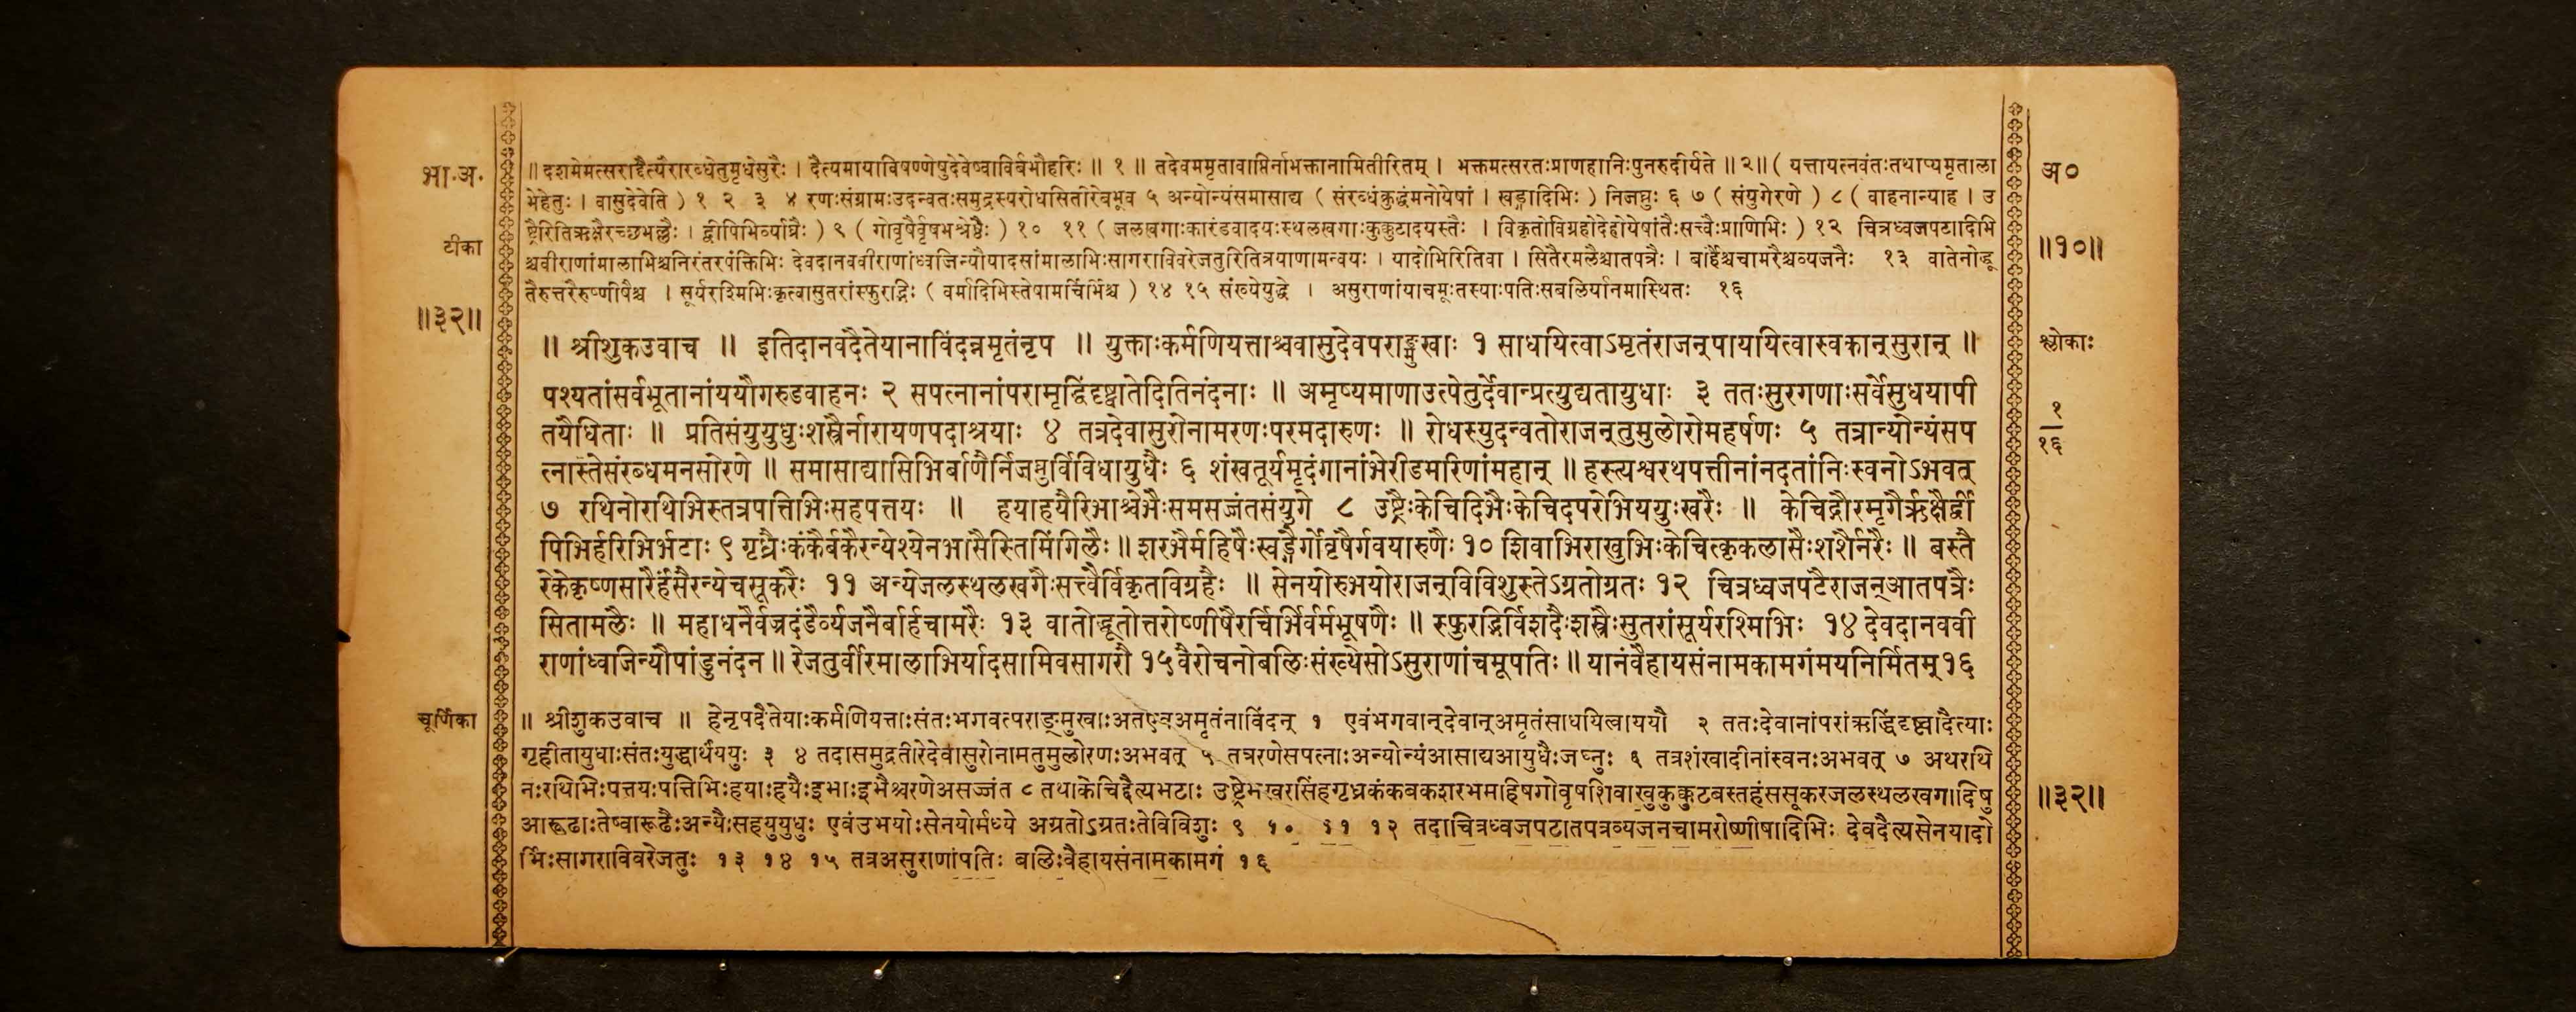 भा.अ.
टीका
॥३२॥
॥ दशमेमत्सराद्दैत्यैरारब्धेतुमृधेसुरैः । दैत्यमायाविषण्णेषुदेवेष्वाविर्बभौहरिः ॥ १ ॥ तदेवममृतावाप्तिर्नाभक्तानामितीरितम् । भक्तमत्सरतःप्राणहानिःपुनरुदीर्यते ॥ २॥ ( यत्तायत्नवंतःतथाप्यमृताला
भेहेतुः । वासुदेवेति ) १ २ ३ ४ रणःसंग्रामःउदन्वतःसमुद्रस्यरोधसितीरेबभूव ५ अन्योन्यंसमासाद्य ( संरब्धंक्रुद्धंमनोयेषां । खड्गादिभिः ) निजघ्नुः ६ ७ ( संयुगेरणे ) ८ ( वाहनान्याह । उ
ष्ट्रैरितिऋक्षैरच्छभल्लैः । द्वीपिभिर्व्याघ्रैः ) ९ ( गोवृषैर्वृषभश्रेष्ठैः ) १० ११ ( जलखगाःकारंडवादयःस्थलखगाःकुक्कुटादयस्तैः । विकृतोविग्रहोदेहोयेषांतैःसत्त्वैःप्राणिभिः ) १२ चित्रध्वजपटादिभि
श्चवीराणांमालाभिश्चनिरंतरपंक्तिभिः देवदानववीराणांध्वजिन्यौयादसांमालाभिःसागराविवरेजतुरितित्रयाणामन्वयः । यादोभिरितिवा । सितैरमलैश्चातपत्रैः । बार्हैश्चचामरैश्चव्यजनैः १३ वातेनोद्धू
तैरुत्तरैरुष्णीषैश्च । सूर्यरश्मिभिःकृत्वासुतरांस्फुरद्भिः ( वर्मादिभिस्तेषामर्चिर्भिश्च ) १४ १५ संख्येयुद्धे । असुराणांयाचमूःतस्याःपतिःसबलिर्यानमास्थितः १६
॥ श्रीशुकउवाच ॥ इतिदानवदैतेयानाविंदन्नमृतंनृप ॥ युक्ताःकर्मणियत्ताश्चवासुदेवपराङ्मुखाः १ साधयित्वाऽमृतंराजन्पाययित्वास्वकान्सुरान् ॥
पश्यतांसर्वभूतानांययौगरुडवाहनः २ सपत्नानांपरामृद्धिंदृष्ट्वातेदितिनंदनाः ॥ अमृष्यमाणाउत्पेतुर्देवान्प्रत्युद्यतायुधाः ३ ततःसुरगणाःसर्वेसुधयापी
तयैधिताः ॥ प्रतिसंयुयुधुःशस्त्रैर्नारायणपदाश्रयाः ४ तत्रदेवासुरोनामरणःपरमदारुणः ॥ रोधस्युदन्वतोराजन्तुमुलोरोमहर्षणः ५ तत्रान्योन्यंसप
त्नास्तेसंरब्धमनसोरणे ॥ समासाद्यासिभिर्बाणैर्निजघ्नुर्विविधायुधैः ६ शंखतूर्यमृदंगानांभेरीडमरिणांमहान् ॥ हस्त्यश्वरथपत्तीनांनदतांनिःस्वनोऽभवत्
७ रथिनोरथिभिस्तत्रपत्तिभिःसहपत्तयः ॥ हयाहयैरिभाश्चेभैःसमसज्जंतसंयुगे ८ उष्ट्रैःकेचिदिभैःकेचिदपरेभियुयुःखरैः ॥ केचिद्गौरमृगैर्ऋक्षैर्द्वी
पिभिर्हरिभिर्भटाः ९ गृध्रैःकंकैर्बकैरन्येश्येनभासैस्तिमिंगिलैः ॥ शरभैर्महिषैःखङ्गैर्गोवृषैर्गवयारुणैः १० शिवाभिराखुभिःकेचित्कृकलासैःशशैर्नरैः ॥ बस्तै
रेकेकृष्णसारैर्हंसैरन्येचसूकरैः ११ अन्येजलस्थलखगैःसत्त्वैर्विकृतविग्रहैः ॥ सेनयोरुभयोराजन्विविशुस्तेऽग्रतोग्रतः १२ चित्रध्वजपटैराजन्आतपत्रैः
सितामलैः ॥ महाधनैर्वज्रदंडैर्व्यजनैर्बार्हचामरैः १३ वातोद्धूतोत्तरोष्णीषैरर्चिर्भिर्वर्मभूषणैः ॥ स्फुरद्भिर्विशदैःशस्त्रैःसुतरांसूर्यरश्मिभिः १४ देवदानववी
राणांध्वजिन्यौपांडुनंदन ॥ रेजतुर्वीरमालाभिर्यादसामिवसागरौ १५ वैरोचनोबलिःसंख्येसोऽसुराणांचमूपतिः ॥ यानंवैहायसंनामकामगंमयनिर्मितम् १६
चूर्णिका
॥ श्रीशुकउवाच ॥ हेनृपदैतेयाःकर्मणियत्ताःसंतःभगवत्पराङ्मुखाःअतएवअमृतंनाविंदन् १ एवंभगवान्देवान्अमृतंसाधयित्वाययौ २ ततःदेवानांपरांऋद्धिंदृष्ट्वादैत्याः
गृहीतायुधाःसंतःयुद्धार्थंययुः ३ ४ तदासमुद्रतीरेदेवासुरोनामतुमुलोरणःअभवत् ५ तत्ररणेसपत्नाःअन्योन्यंआसाद्यआयुधैःजघ्नुः ६ तत्रशंखादीनांस्वनःअभवत् ७ अथरथि
नःरथिभिःपत्तयःपत्तिभिःहयाःहयैःइभाःइभैश्चरणेअसज्जंत ८ तथाकेचिद्दैत्यभटाः उष्ट्रेभखरसिंहगृध्रकंकबकशरभमहिषगोवृषशिवाखुकुक्कुटबस्तहंससूकरजलस्थलखगादिषु
आरूढाःतेष्वारूढैःअन्यैःसहयुयुधुः एवंउभयोःसेनयोर्मध्ये अग्रतोऽग्रतःतेविविशुः ९ १० ११ १२ तदाचित्रध्वजपटातपत्रव्यजनचामरोष्णीषादिभिः देवदैत्यसेनयादो
भिःसागराविवरेजतुः १३ १४ १५ तत्रअसुराणांपतिः बलिःवैहायसंनामकामगं १६
अ०
॥१०॥
श्लोकाः
१
१६
॥३२॥